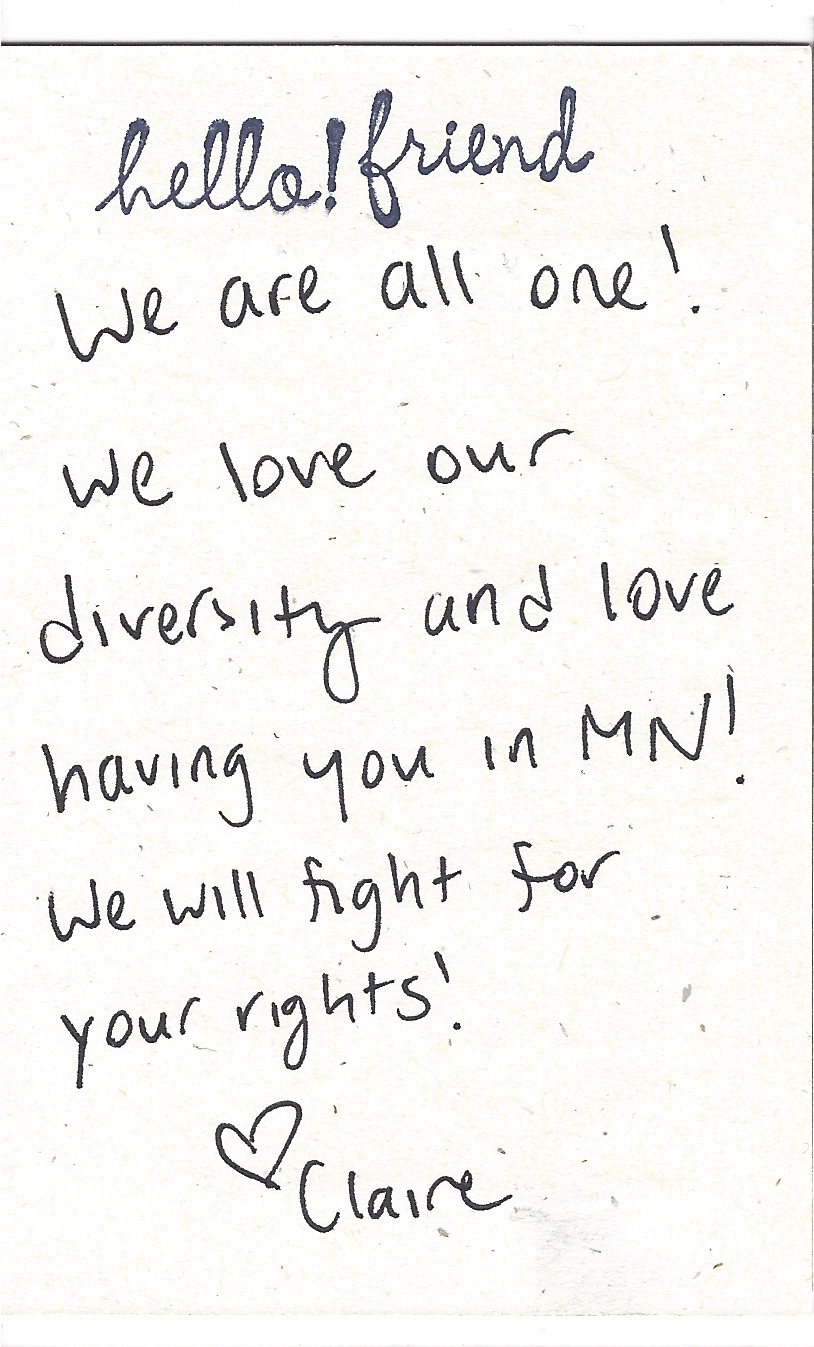 hello! friend
We are all one!
We love our
diversity and love
having you in MN!
We will fight for
your rights!
♡ Claire